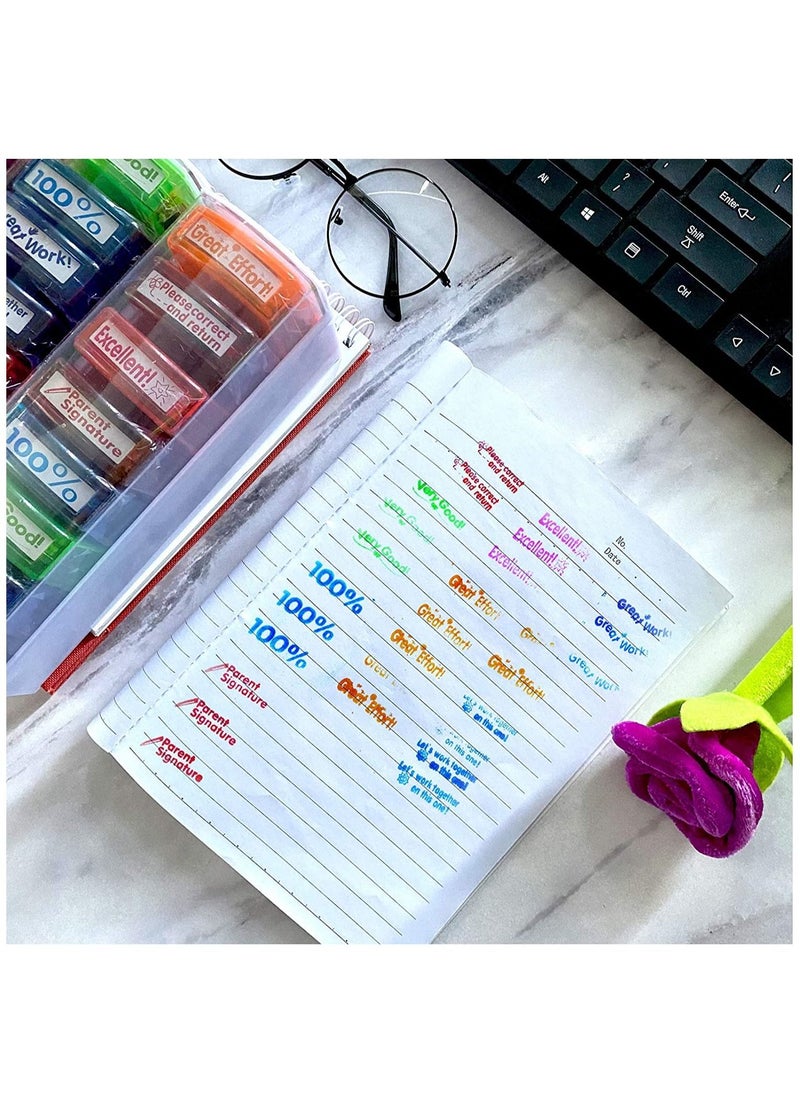 Good!
100%
Work!
Great Effort!
Please correct
and return
Excellent!
Parent
Signature
100%
Good!
Alt
?
/
Enter
Shift
Ctrl
No.
Date
Please correct
and return
Please correct
and return
Very Good!
Very Good!
Very Good!
Excellent!
Excellent!
Excellent!
100%
100%
100%
Great Effort!
Great Effort!
Great Effort!
Great Effort!
Great Effort!
Great Work!
Great Work!
Great Work
Parent
Signature
Parent
Signature
Parent
Signature
Let's work together
on this one!
together
on this one!
Let's work together
on this one!
Let's work together
on this one!